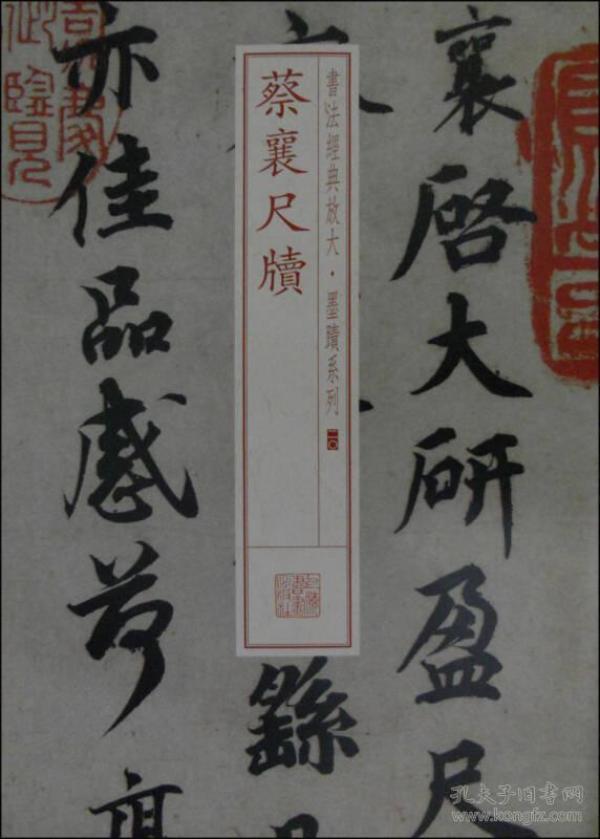 襄啓大研盈尺
書法經典放大·墨蹟系列 二〇
蔡襄尺牘
繇
亦佳品感荷
孔夫子旧書网
www.kongfz.com